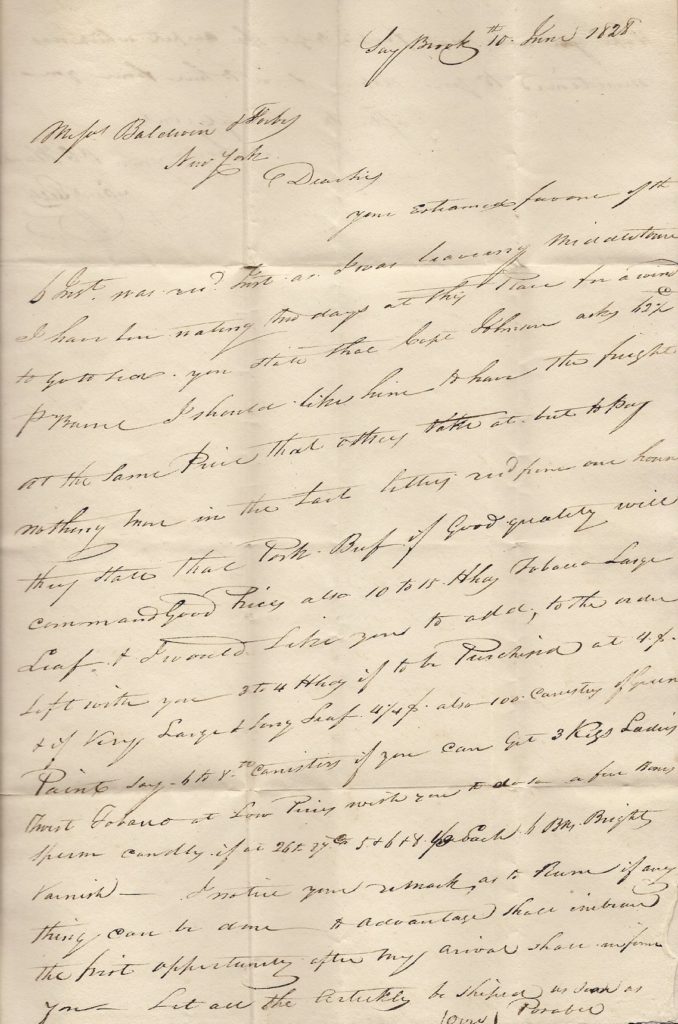 Say Brook 10th June 1828
Messrs Baldwin & Forbes
New York
Dear Sirs
your esteamed favore of th
6 Inst. was recd. Just as I was leaveing Middletown
I have been wating two days at this Place for a wind
to go to sea. you state that Capt Johnson asks 62½ c
pr Barrel I should like him to have the freight
at the same Price that others take at. but to pay
nothing more in the Last letters recd from our house
they state that Pork. Beef. if Good quality will
command Good Prices also 10 to 15 Hhds Tobacco Large
Leaf. & I would Like you to add, to the order
Left with you 3 to 4 Hhds if to be Purchased at 4.
& if Very Large & Long Leaf 4¼ also 100 Canisters of green
Paint say. 6 to 8 Canisters if you can Get 3 Kegs Ladies
twist Tobacco at Low Prices wish you to do so a few Boxes
Sperm candles if at 26 to 27 Cts 5 & 6 & 8 Each 6 Bls Bright
Varnish — I notice your remark, as to Rum if any
thing can be done — to advantage shall imbrace
the first opportunity after my arival shall inform
you — Let all the Artickles be shiped as soon as
Posabel